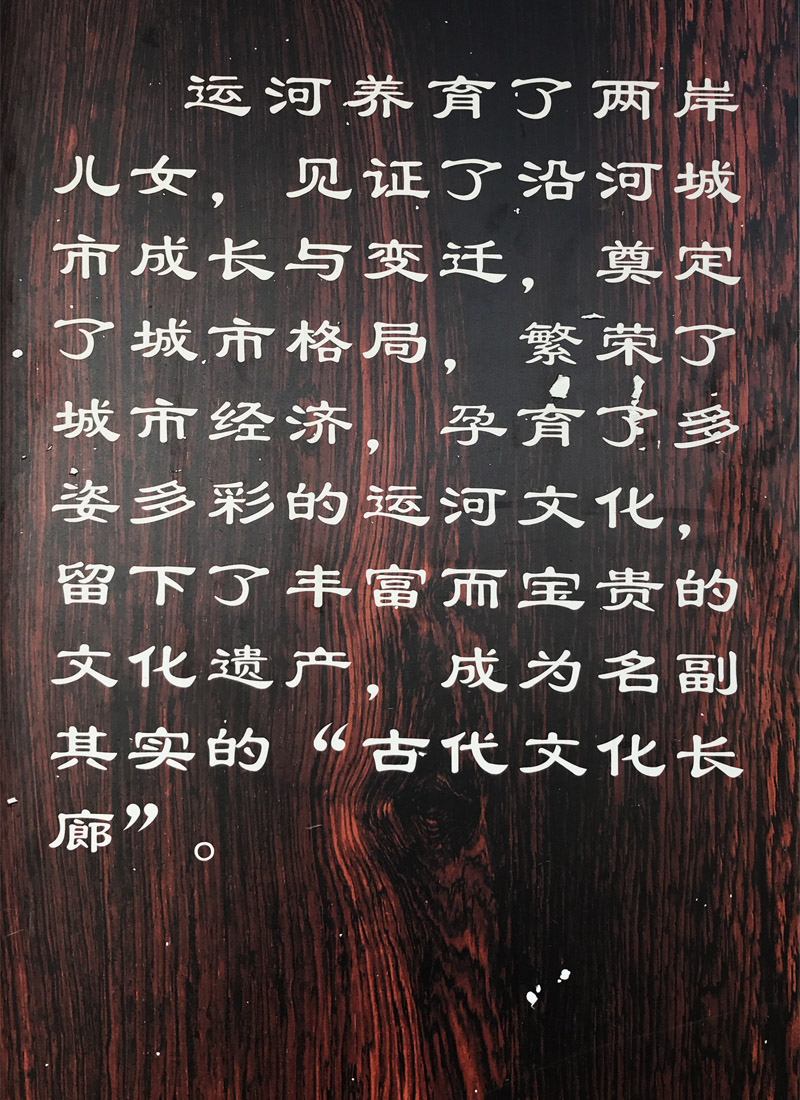 运河养育了两岸
儿女，见证了沿河城
市成长与变迁，奠定
了城市格局，繁荣了
城市经济，孕育了多
姿多彩的运河文化，
留下了丰富而宝贵的
文化遗产，成为名副
其实的“古代文化长
廊”。